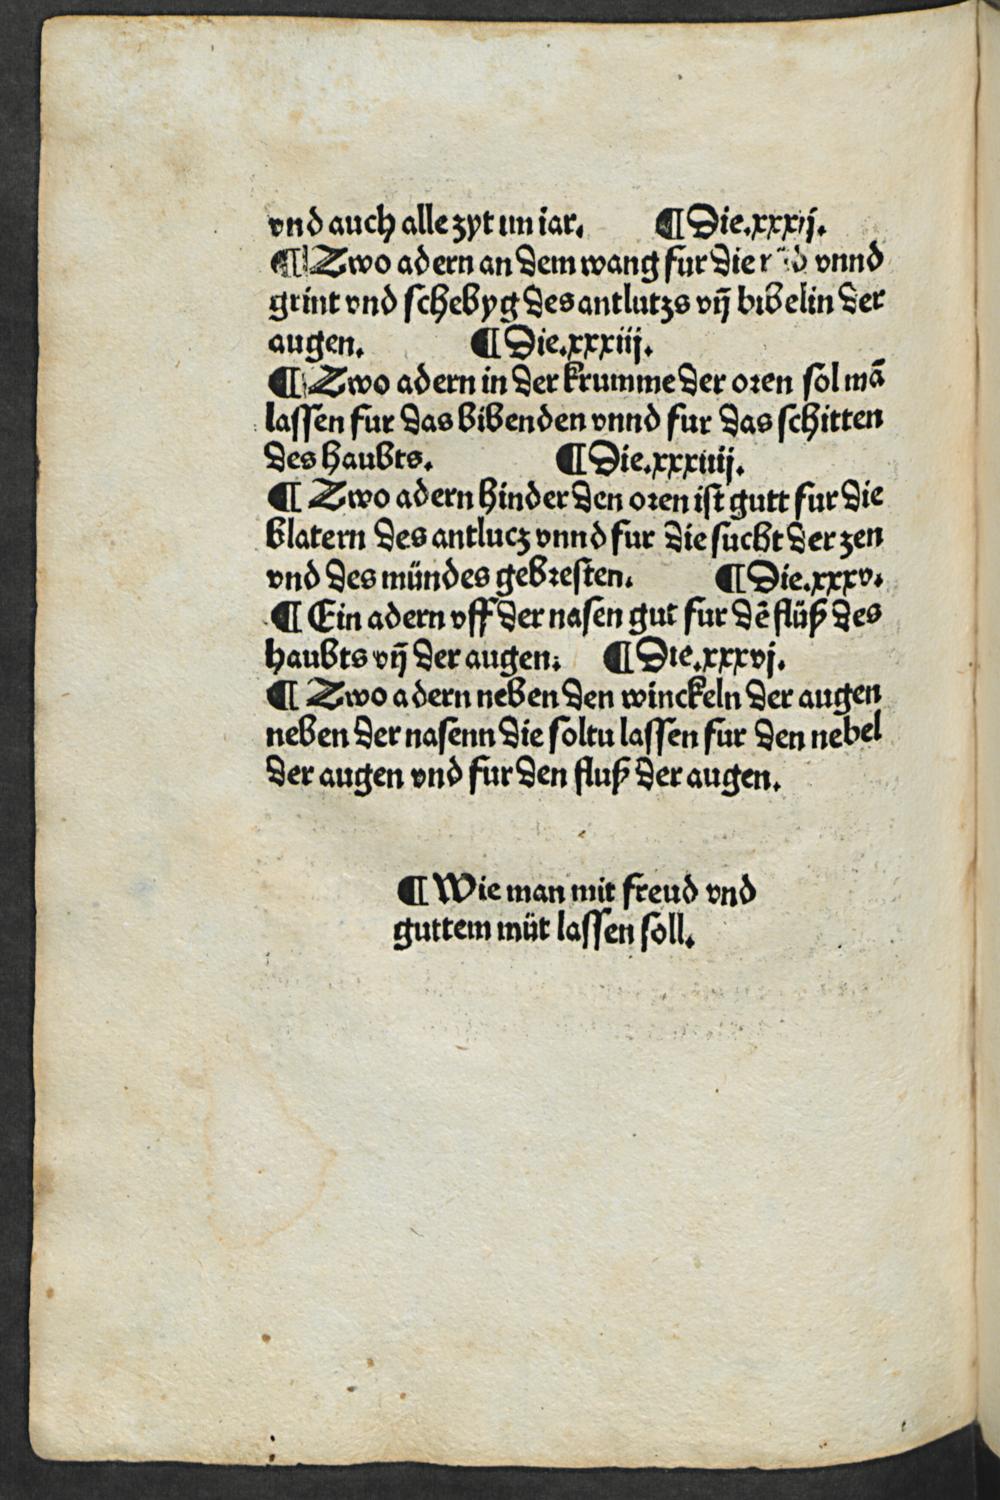 vnd auch alle zyt im iar. ¶ Die.xxxij.
¶ Zwo adern an dem wang fur die vnnd
grint vnd schebyg des antlutzs vn̄ bibelin der
augen. ¶ Die.xxxiij.
¶ Zwo adern in der krumme der oren sol mā
lassen fur das bibenden vnnd fur das schitten
des haubts. ¶ Die.xxxiiij.
¶ Zwo adern hinder den oren ist gutt fur die
blatern des antlucz vnnd fur die sucht der zen
vnd des mündes gebresten. ¶ Die.xxxv.
¶ Ein adern vff der nasen gut fur dē flüß des
haubts vn̄ der augen. ¶ Die.xxxvj.
¶ Zwo adern neben den winckeln der augen
neben der nasenn die soltu lassen fur den nebel
der augen vnd fur den fluß der augen.
¶ Wie man mit freud vnd
guttem müt lassen soll.